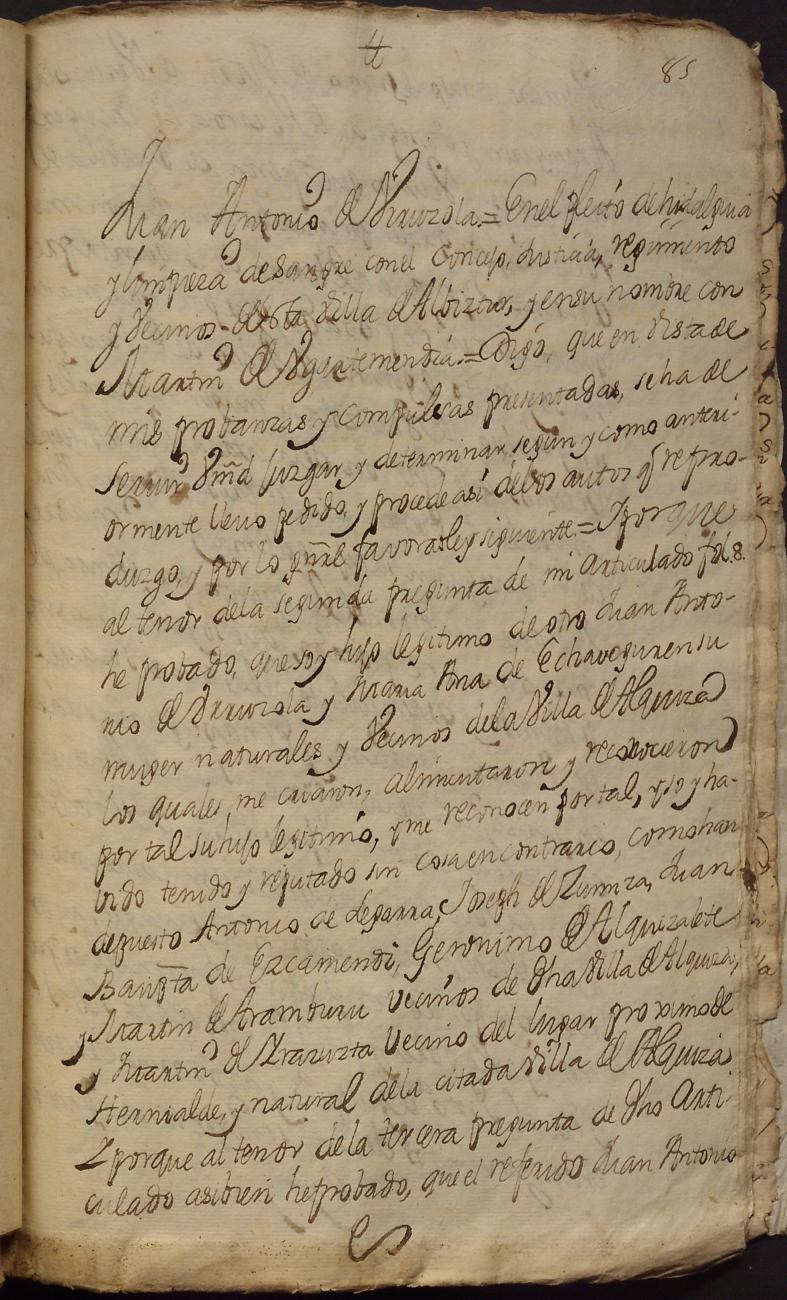 85
Juan Antonio de Vrruzola = En el pleito de hidalguia
y limpieza de Sangre con el Concejo, Justicia, regimiento
y Vecinos de esta Villa de Albiztur, y en su nombre con
Martin de Yguategmendia = Digo, que en vista de
mis probanzas y compulsas presentadas, se ha de
seruir Vmd juzgar y determinar segun y como anteri-
ormente lleuo pedido, y procede asi de los autos q repro-
duzgo, y por lo gnral favorable y siguiente = Y porque
al tenor de la segunda pregunta de mi articulado fol. 8.
he probado, que soy hijo legitimo de otro Juan Anto-
nio de Vrruzola y Maria Ana de Echaveguren su
muger naturales y Vecinos de la Villa de Alquiza
los quales me criaron, alimentaron y reconocieron
por tal su hijo legitimo, y me reconocen por tal, y soy ha-
bido tenido y reputado sin cosa en contrario, como han
depuesto Antonio de Legarra, Joseph de Zumiza, Juan
Baupta de Ezcamendi, Geronimo de Alquizalete
y Martin de Aramburu Vecinos de dha Villa de Alquiza,
y Martin de Yrazuzta Vecino del lugar proximo de
Hernialde, y natural de la citada Villa de Alquiza
Y porque al tenor de la tercera pregunta de dho Arti
culado asibien he probado, que el referido Juan Antonio